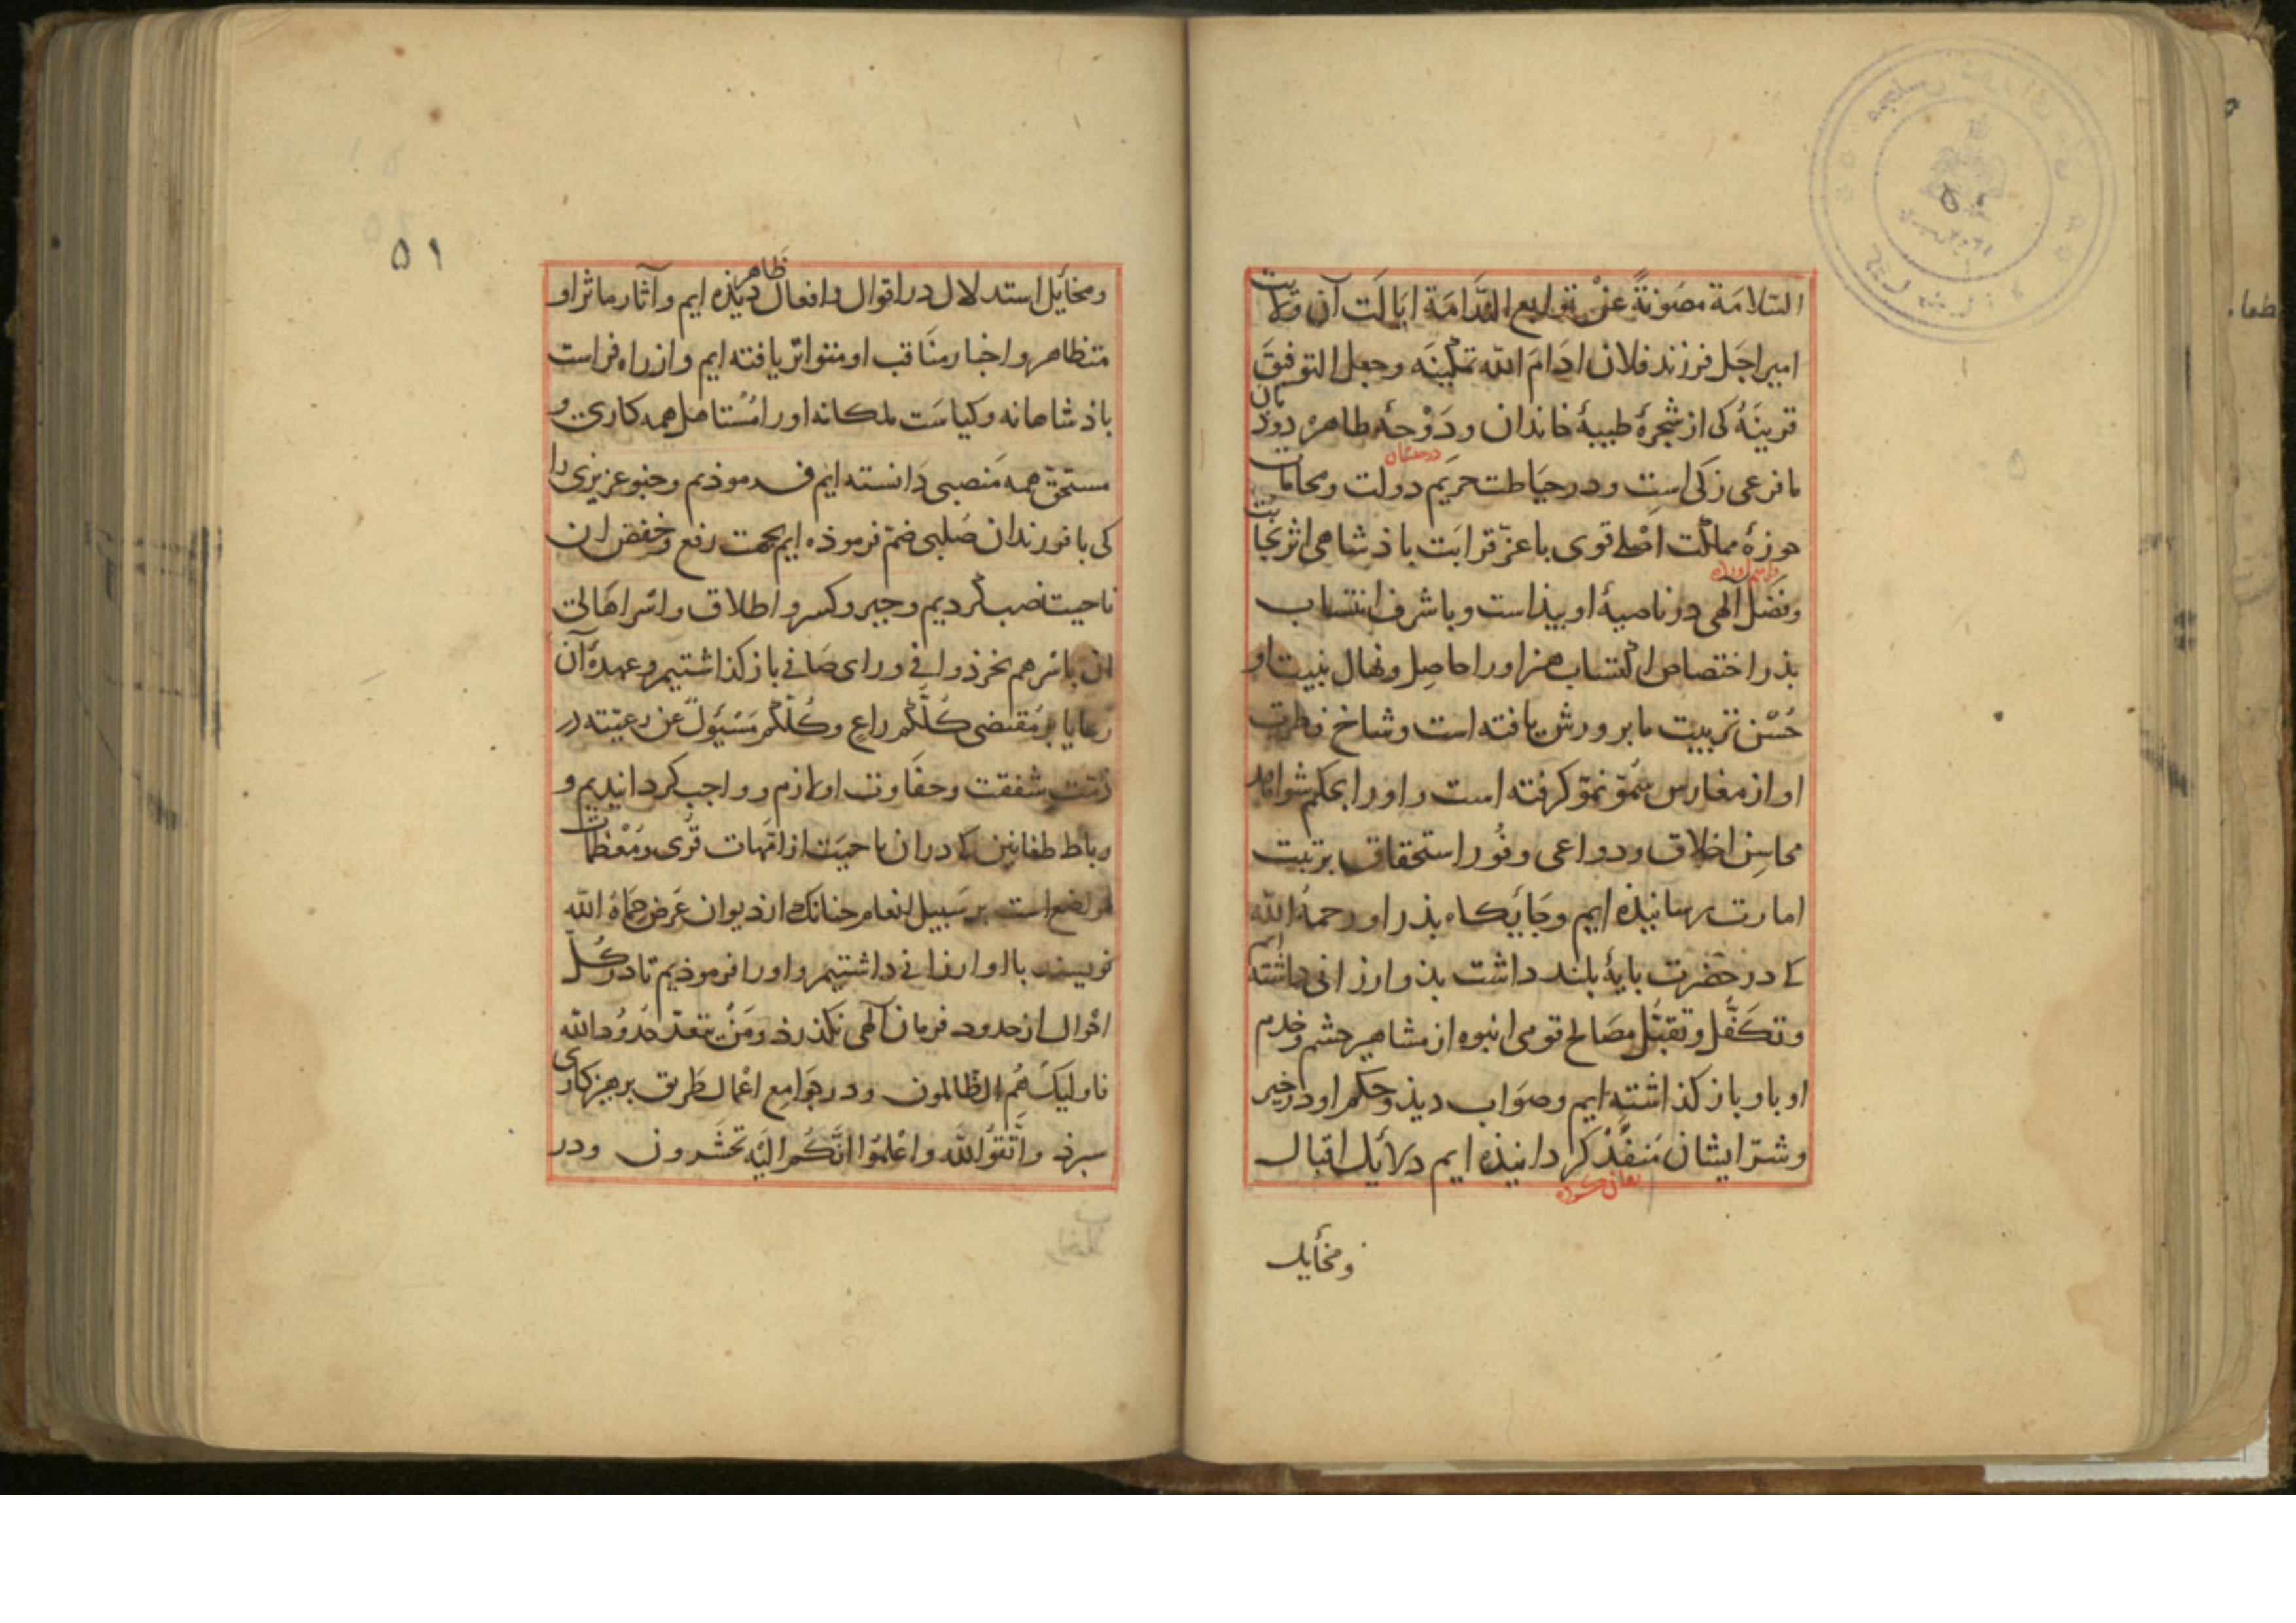 السّلامَة مصَونةً عنْ توابع النّدامَة ایالَت آن ولایت
امیر اجَل فرزند فلان ادَامَ الله تمکینَه وجعل التوفیقَ
قرینَهُ کی از شجرهٔ طیبهٔ خاندان و دَوْحهٔ طاهرهٔ دودمان
ما فرعی زکی است و در حیَاطت حَریم دولت و محامات
درخشان
حوزهٔ مملکت اصْلی قوی با عزّ قرابَت باذشاهی اثر نجابت
وفضَل آلهی در ناصیهٔ او بیذاست و با شرف انتساب
بذر اختصاص اکتساب هنر اورا حاصِل و نهال بنیت او
حُسْن تربیت ما برورش یافته است و شاخ فطرت
او از مغارس سُموّ نموّ کرفته است و اورا بحکم شواهد
محاسِن اخلاق و دواعی وفُور استحقاق برتبت
امارت رسانیذه ایم و جَایکاه بذر او رحمهُ الله
کے در حضرت بایهٔ بلند داشت بذو ارزانی داشته ایم
وتکفّل و تقبّل مصَالح قومی انبوه از مشاهیر حشم و خدم
او باو باز کذاشته ایم وصوَاب دیذ و حکم او در خیر
وشرّ ایشان مُنفَّذ کردانیذه ایم دلایل اقبال
ومخایل
۵۱
ومخایل استدلال در اقوال و افعال ظاهر دیذه ایم و آثار ماثر او
متظاهر و اخبار منَاقب او متواتر یافته ایم و از راه فراست
باذشاهانه وکیاسَت ملکانه اورا مُسْتاهل همه کاری و
مستحق همه مَنصبی دَانسته ایم فرموذیم و جنو عزیزی را
کی با فرزندان صُلبی ضمّ فرموذه ایم بجهت رفع و خفض ان
ناحیت نصب کردیم و جبر و کسر و اطلاق و اسر اهَالی
ان باسرهم بخرذ وافی و رای صَافی باز کذاشتیم و عهدهٔ آن
رعایا بر مُقتضی کُلّکُم راعٍ وکُلّکُم مَسْئوُلٌ عن رعیّته در
ذمّت شفقت و حفاوت او لازم و واجب کردانیدیم و
رباط طغانین کے دران ناحیَت از امّهات قُری و مُعْظمات
مواضع است بر سَبیل انعام جنانک از دیوان عَرض حَمَاهُ الله
نویسند باو ارزانی داشتیم و اورا فرموذیم تا در کُل
احْوال از حدود فرمان آلهی نکذرذ ومَنْ یتعدّ حُدُودَ الله
فاولیکَ هُم الظالمون ودر جوَامِع اعْمال طَریق برهیزکاری
سبرذ واتّقوُا اللهَ واعْلمُوا انّکُم الیْه تُحشَرون ودر